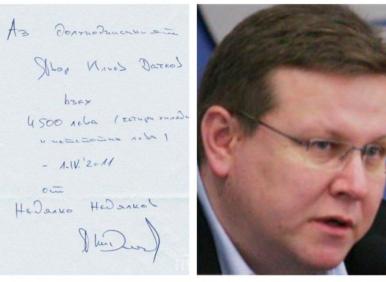 Аз долуподписаният
Явор Илиев Дачков
взех
4500 лева (четири хиляди
и петстотин лева)
- 1.IV.2011
от
Недялко Недялков